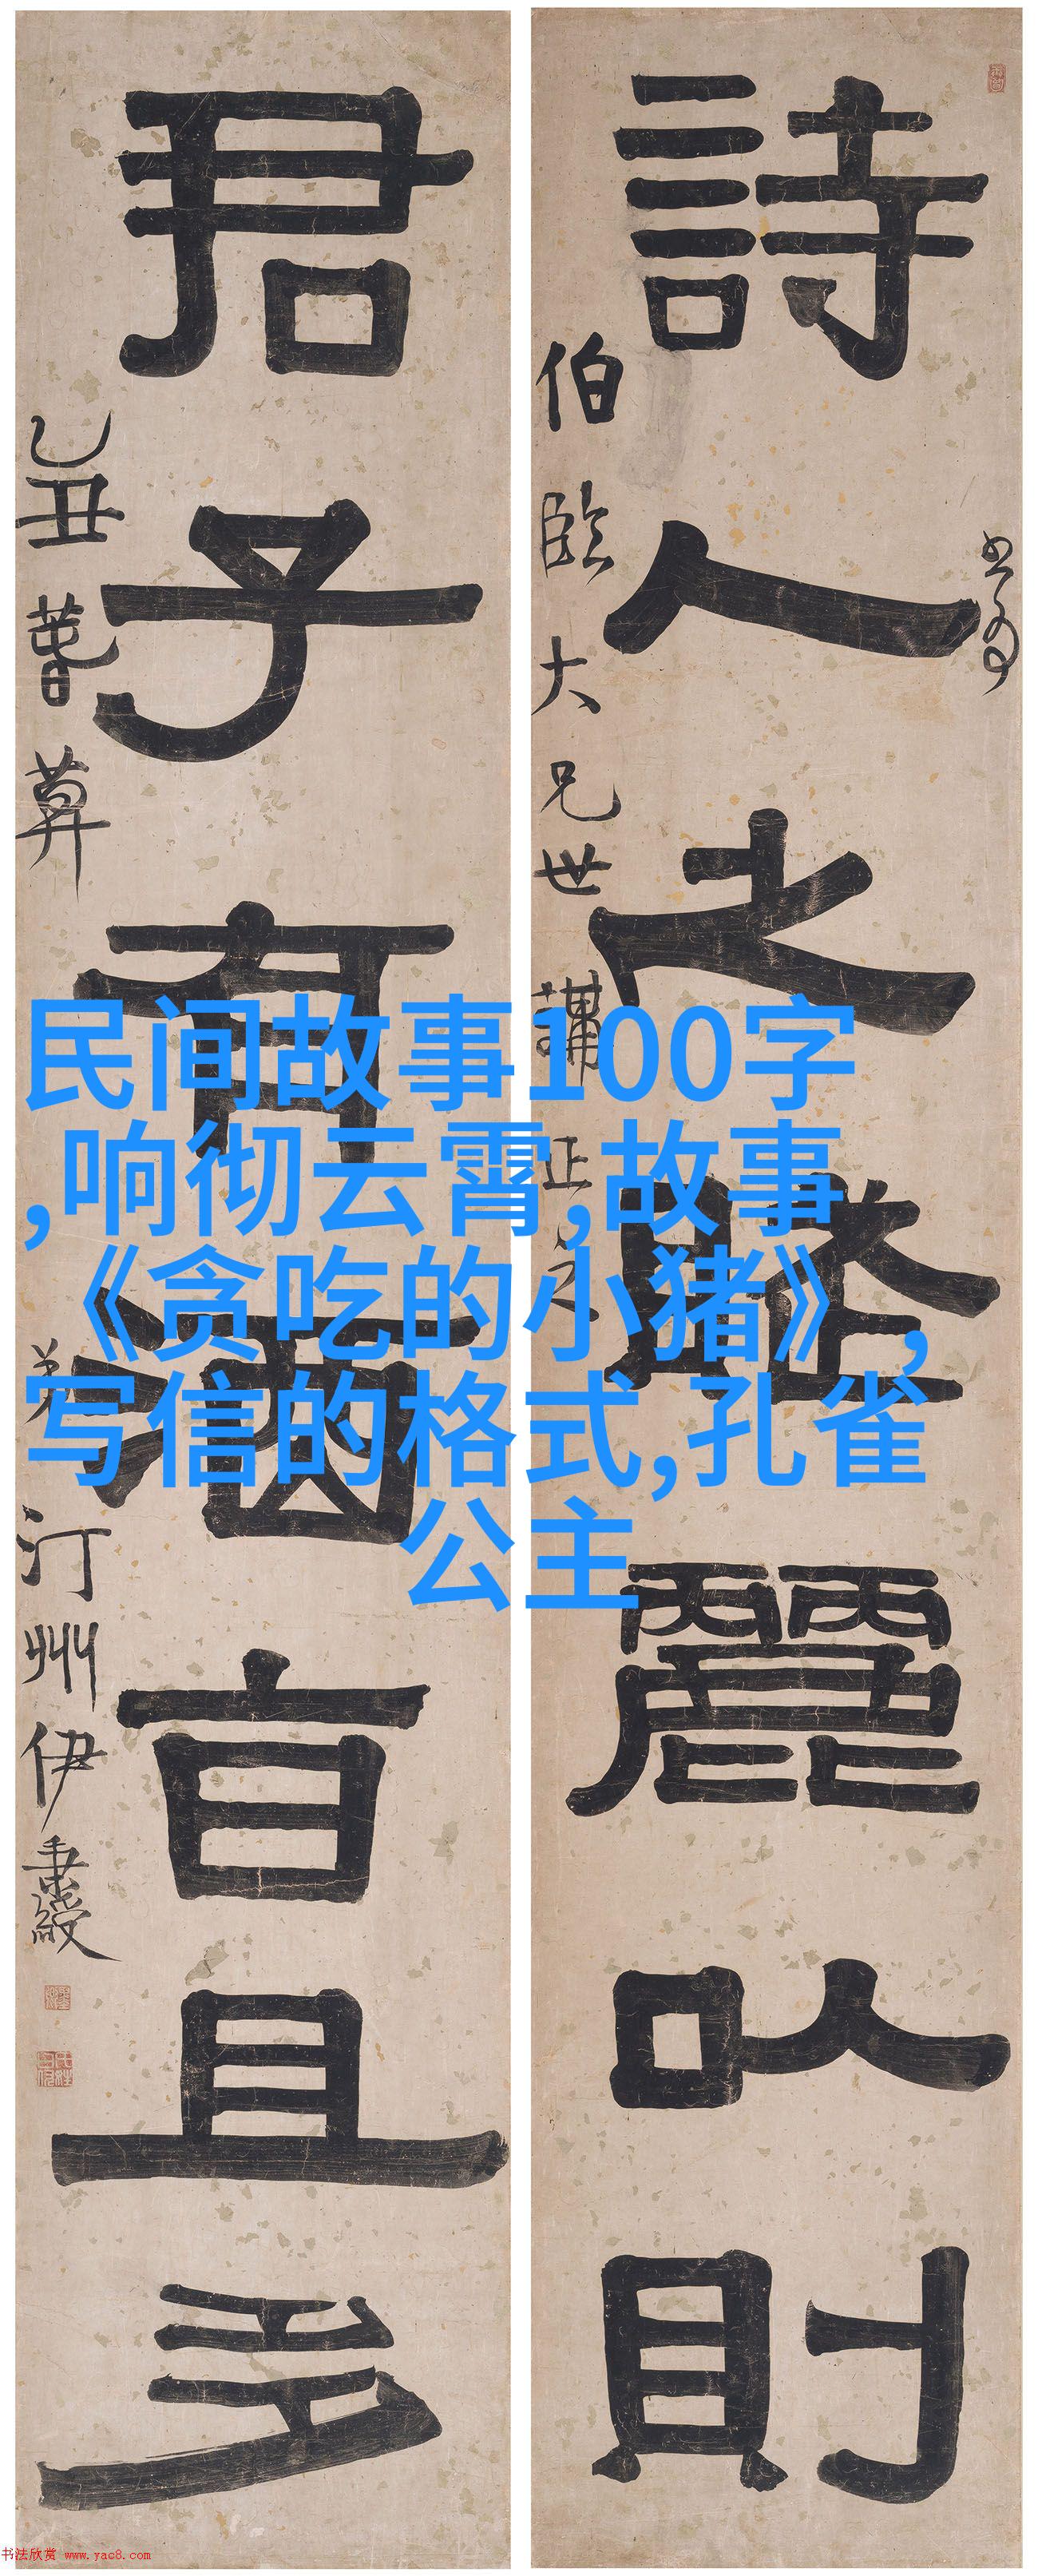 詩人之賦麗以則
君子有酒旨且多
伯臨大兄世講正之
乙丑暮春
弟汀州伊秉綬
民间故事100字
,响彻云霄,故事
《贪吃的小猪》,
写信的格式,孔雀
公主
书法欣赏 www.yac8.com